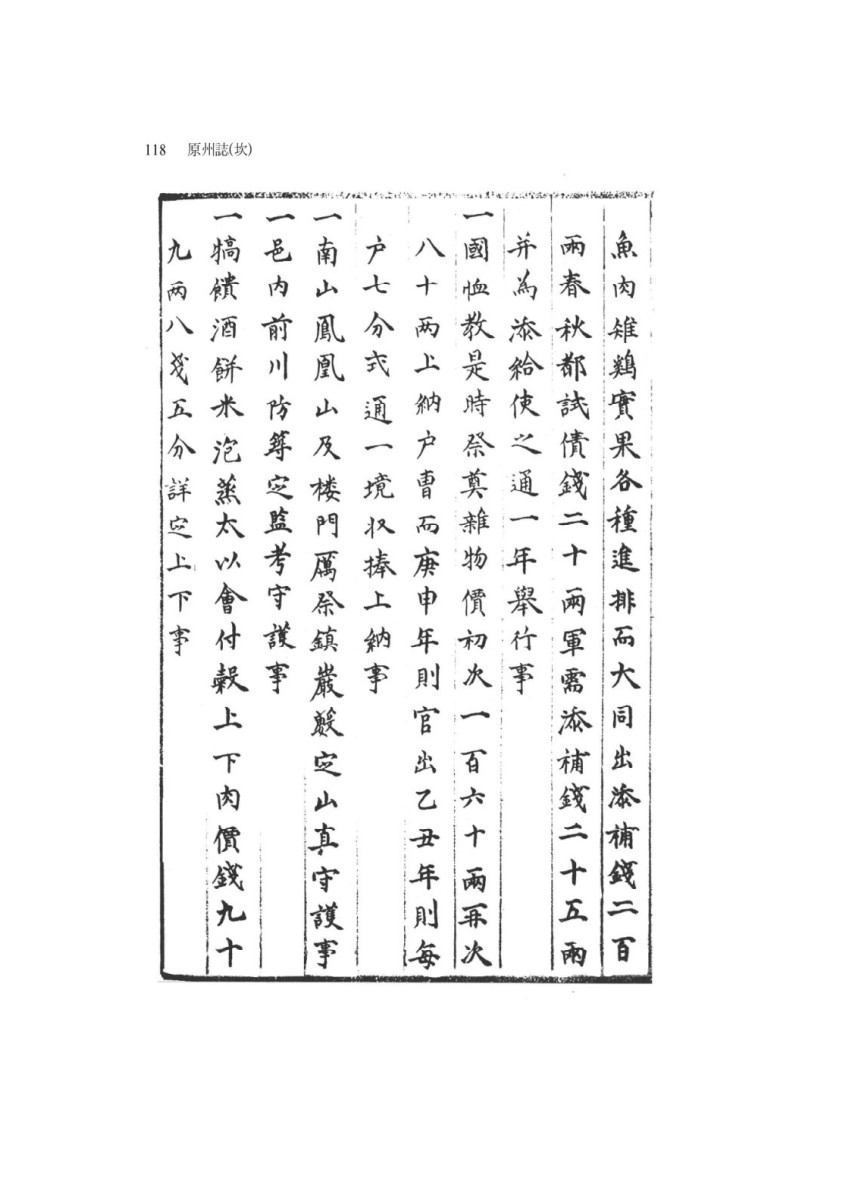 118 原州誌(坎)
魚肉雉鷄實果各種進排而大同出添補錢二百
兩春秋都試債錢二十兩軍需添補錢二十五兩
并爲添給使之通一年擧行事
一國恤敎是時祭奠雜物價初次一百六十兩再次
八十両上納户曹而庚申年則官出乙丑年則每
户七分式通一境収捧上納事
一南山鳳凰山及楼門厲祭鎭巖定山直守護事
一邑内前川防築定監考守護事
一犒饋酒餠米泡蒸太以會付穀上下肉價錢九十
九两八戔五分詳定上下事